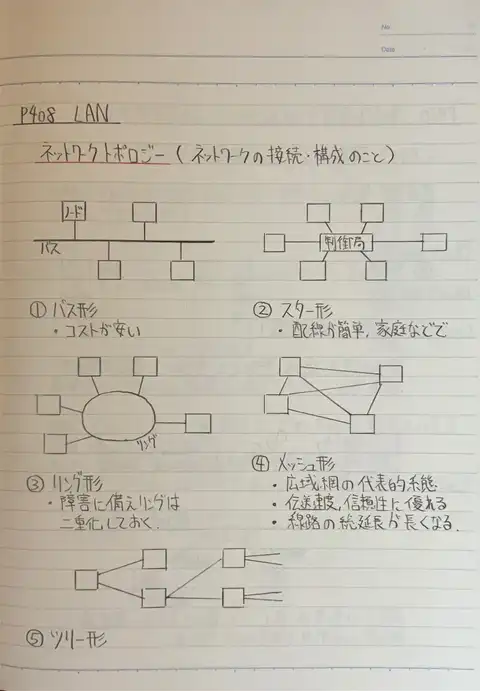 No.
Date
P408 LAN
ネットワークトポロジー(ネットワークの接続・構成のこと)
ノード
バス
制御局
① バス形
・コストが安い
② スター形
・配線が簡単,家庭などで
リング
③ リング形
・障害に備えリングは
二重化しておく.
④ メッシュ形
・広域網の代表的形態
・伝送速度,信頼性に優れる
・線路の総延長が長くなる.
⑤ ツリー形